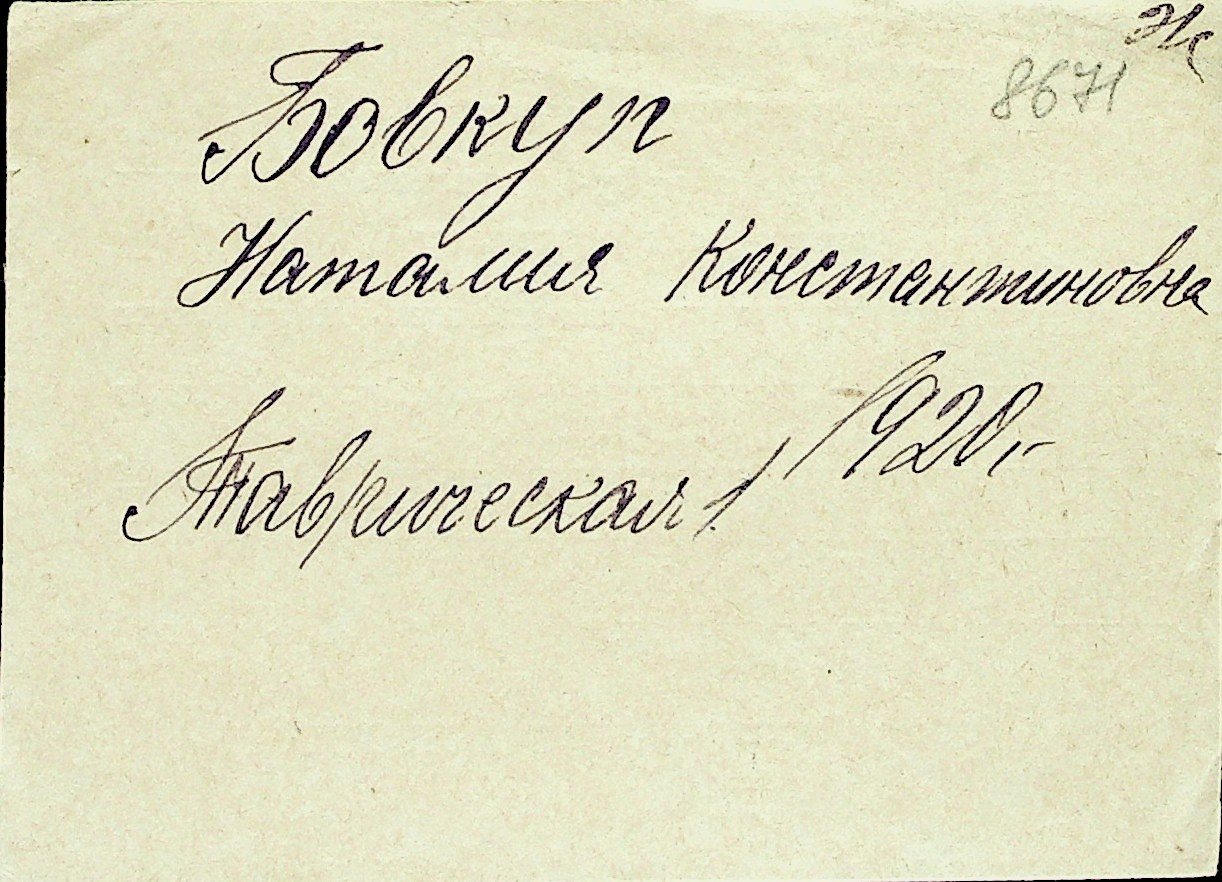 Ж
8671
Бовкун
Наталия Константиновна
1920,-
Таврическая 1